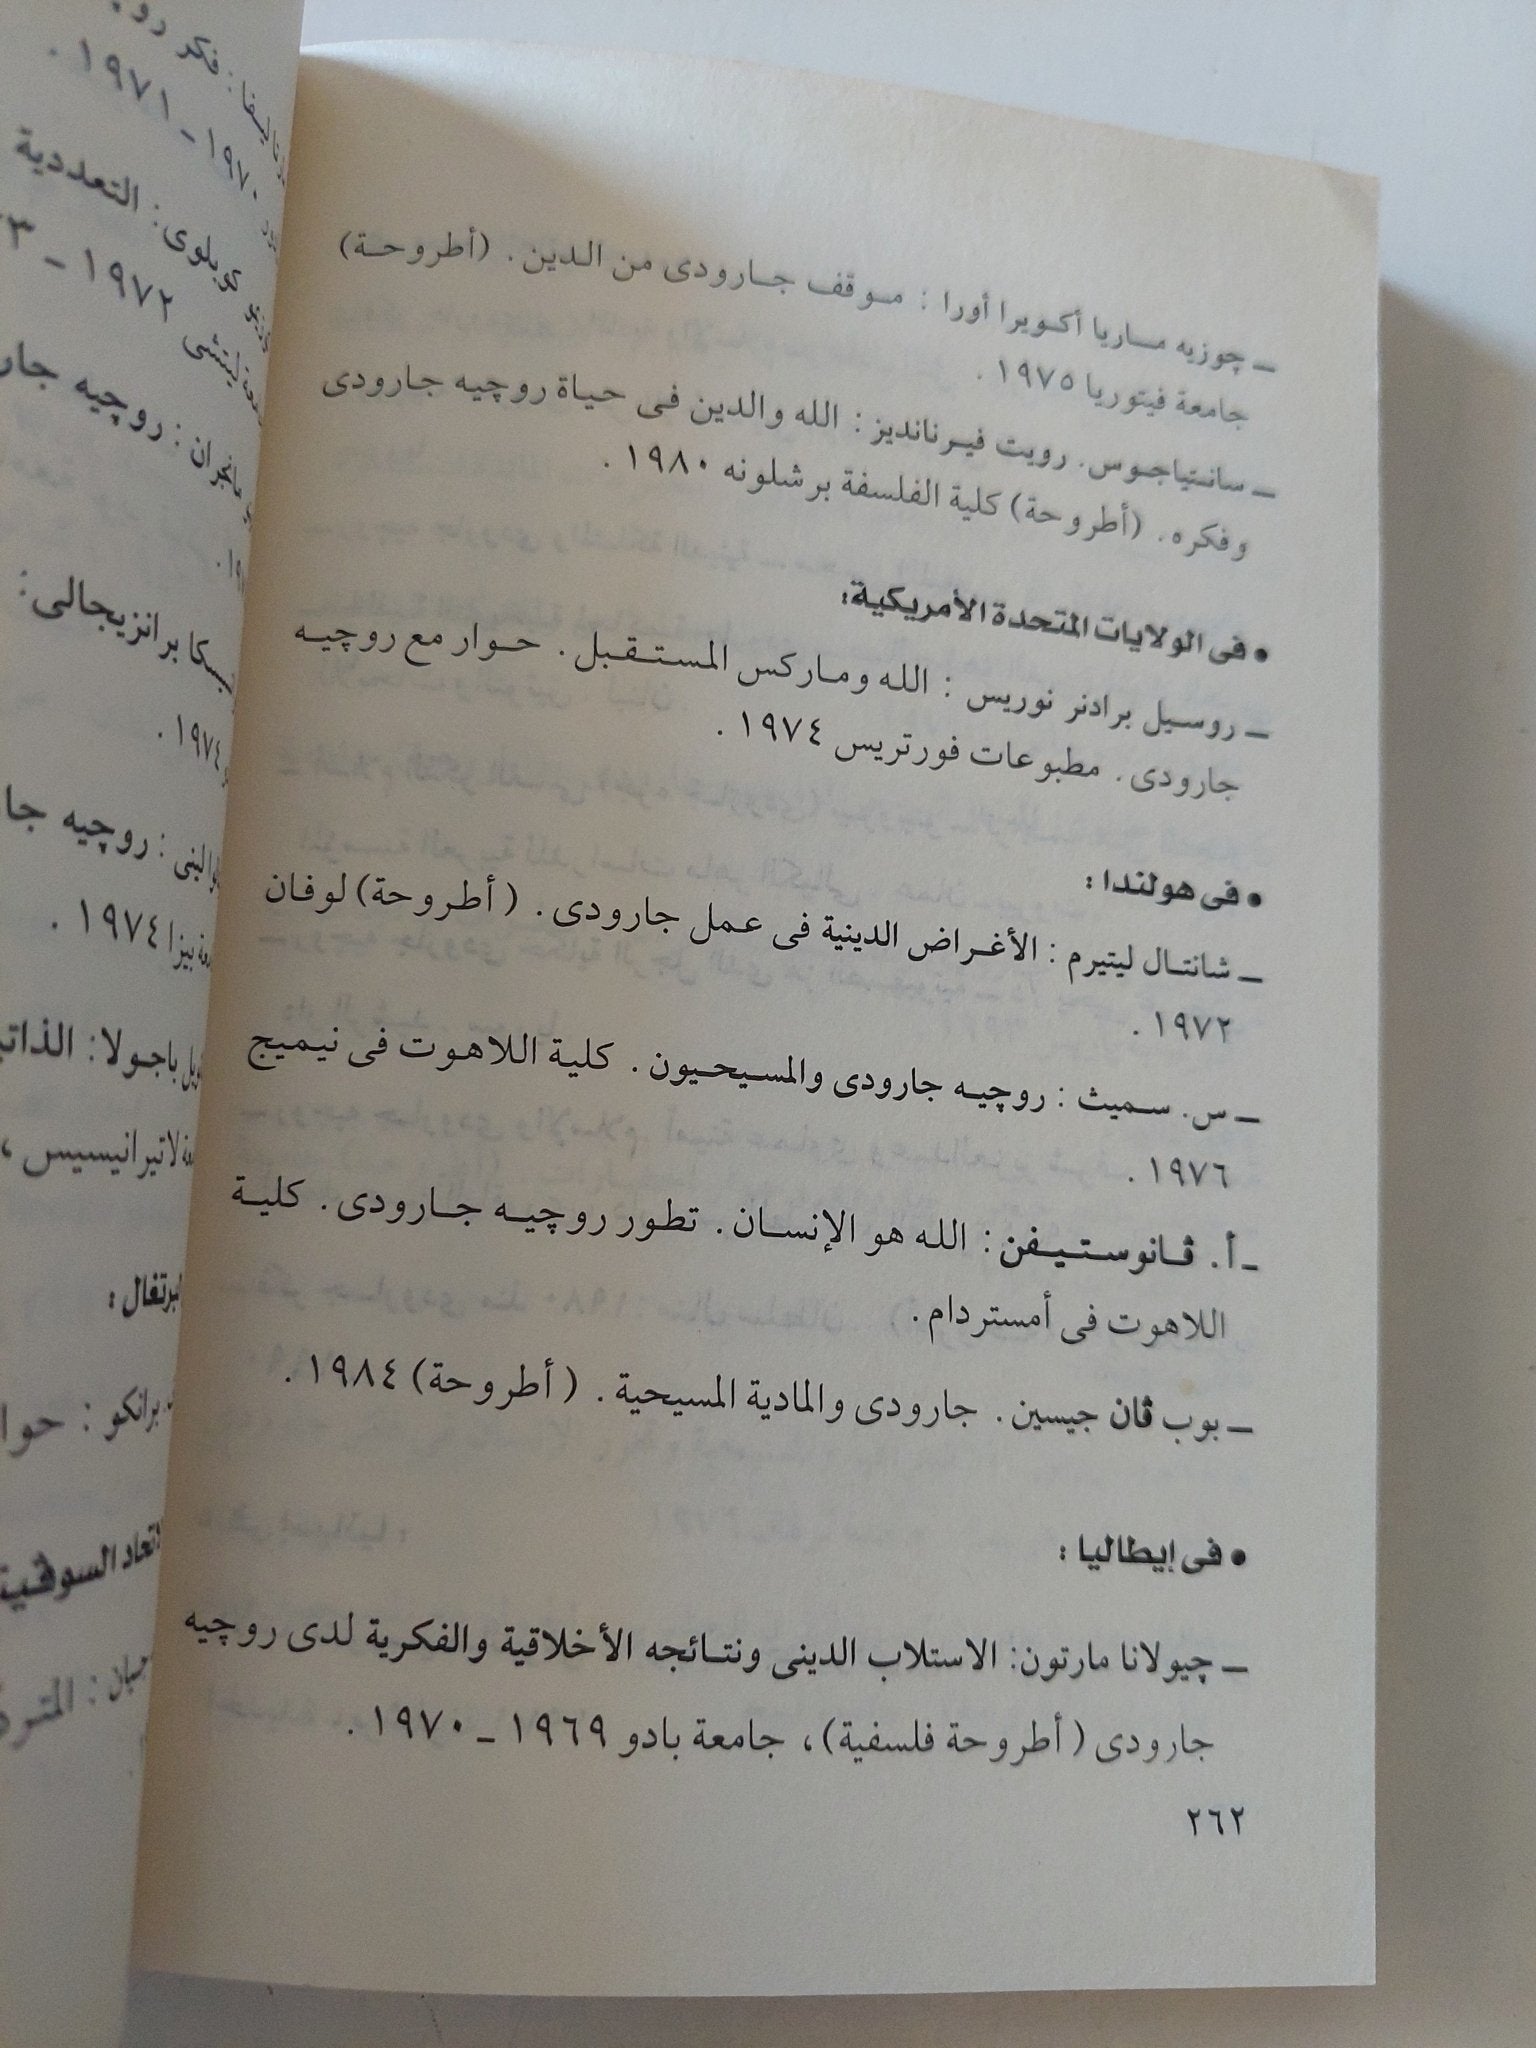 ـ چوزيه مساريا أكويرا أورا : موقف جارودى من الدين . (أطروحة)
جامعة فيتوريا ١٩٧٥ .
ـ سانتياجوس. رويت فيرنانديز : الله والدين فى حياة روچيه جارودى
وفكره . (أطروحة) كلية الفلسفة برشلونه ١٩٨٠ .
• فى الولايات المتحدة الأمريكية:
ـ روسيل برادنر نوريس : الله وماركس المستقبل . حوار مع روچيه
جارودى . مطبوعات فورتريس ١٩٧٤ .
• فى هولندا :
ـ شانتال ليتيرم : الأغراض الدينية فى عمل جارودى . (أطروحة) لوفان
١٩٧٢ .
ـ س. سميث : روچيه جارودى والمسيحيون . كلية اللاهوت فى نيميج
١٩٧٦ .
ـ أ. ڤانوستيفن : الله هو الإنسان . تطور روچيه جارودى . كلية
اللاهوت فى أمستردام .
ـ بوب ڤان جيسين . جارودى والمادية المسيحية . (أطروحة) ١٩٨٤ .
• فى إيطاليا :
ـ چيولانا مارتون: الاستلاب الدينى ونتائجه الأخلاقية والفكرية لدى روچيه
جارودى (أطروحة فلسفية) ، جامعة بادو ١٩٦٩ ـ ١٩٧٠ .
٢٦٢
: فكر
١٩٧٠ ـ ١٩٧١ .
كوبلوى : التعددية
١٩٧٢ ـ
مانجران : روچيه
برانزيجالى :
١٩٧٤ .
: روچيه
بيزا ١٩٧٤ .
باجولا :
لاتيرانيسيس ،
برانكو :